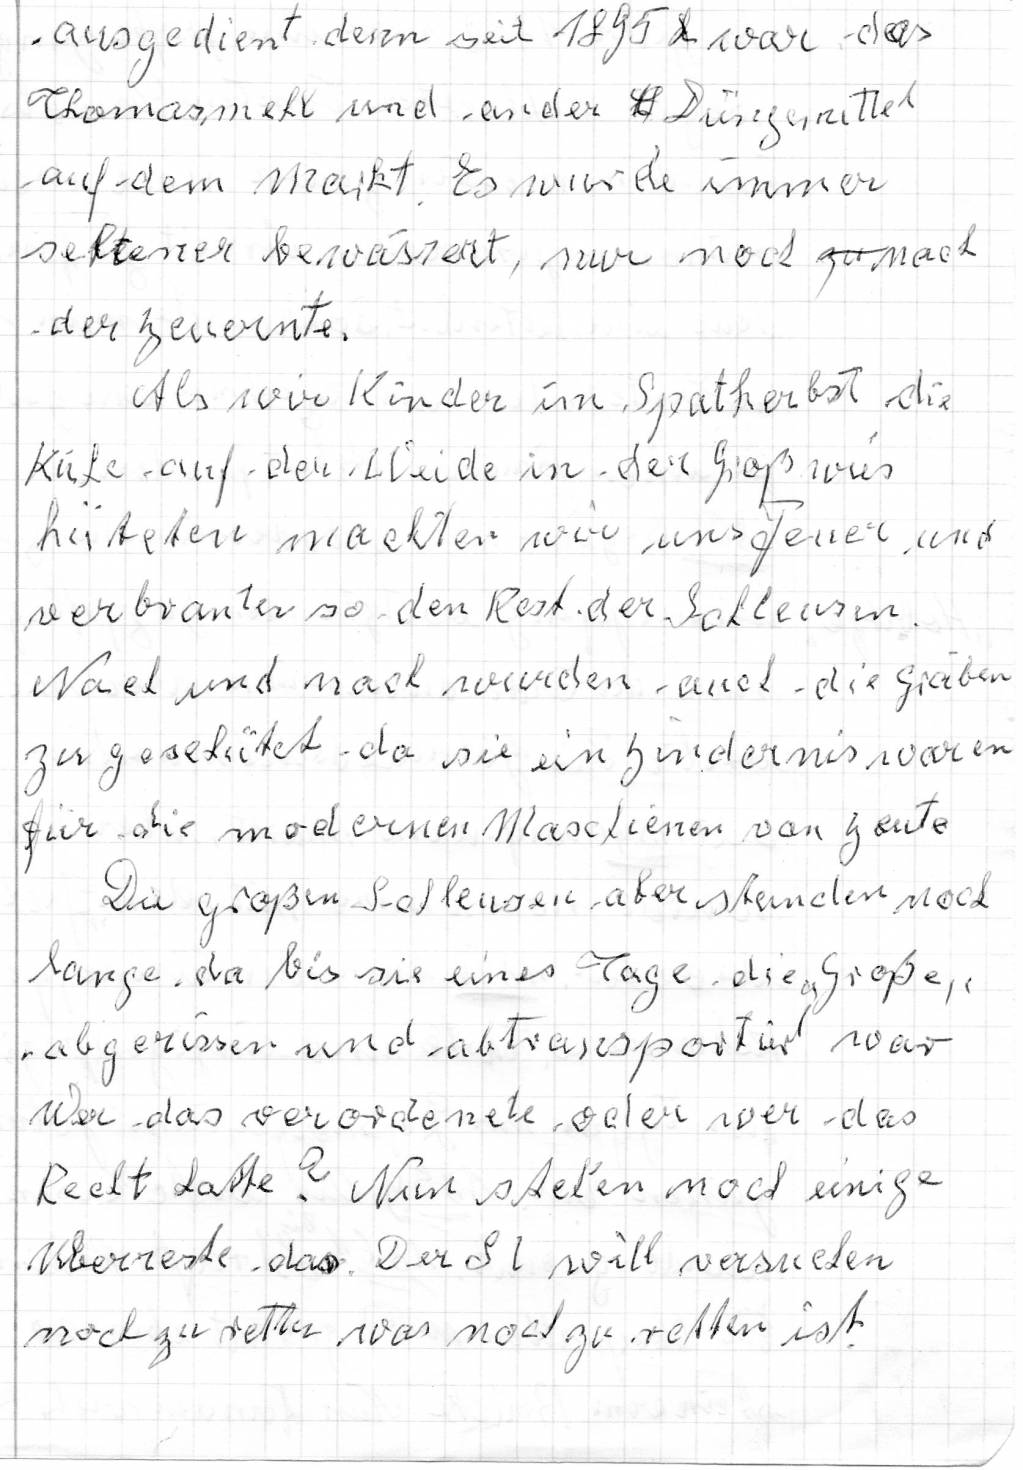 ausgedient denn seit 1895 war das
Thomasmehl und ander Düngemittel
auf dem Markt. Es wurde immer
seltener bewässert, nur noch zu nach
der Heuernte.
Als wir Kinder im Spätherbst die
Kühe auf der Weide in der Großwies
hüteten machten wir uns Feuer und
verbranten so den Rest der Schleusen.
Nach und nach wurden auch die Gräben
zu geschütet da sie ein Hindernis waren
für die modernen Maschienen von Heute
Die großen Schleusen aber standen noch
lange da bis sie eines Tage die „Große"
abgerissen und abtransportirt war
Wer das verordenete oder wer das
Recht hatte? Nun stehen noch einige
Überreste da. Der S l will versuchen
noch zu retten was noch zu retten ist.